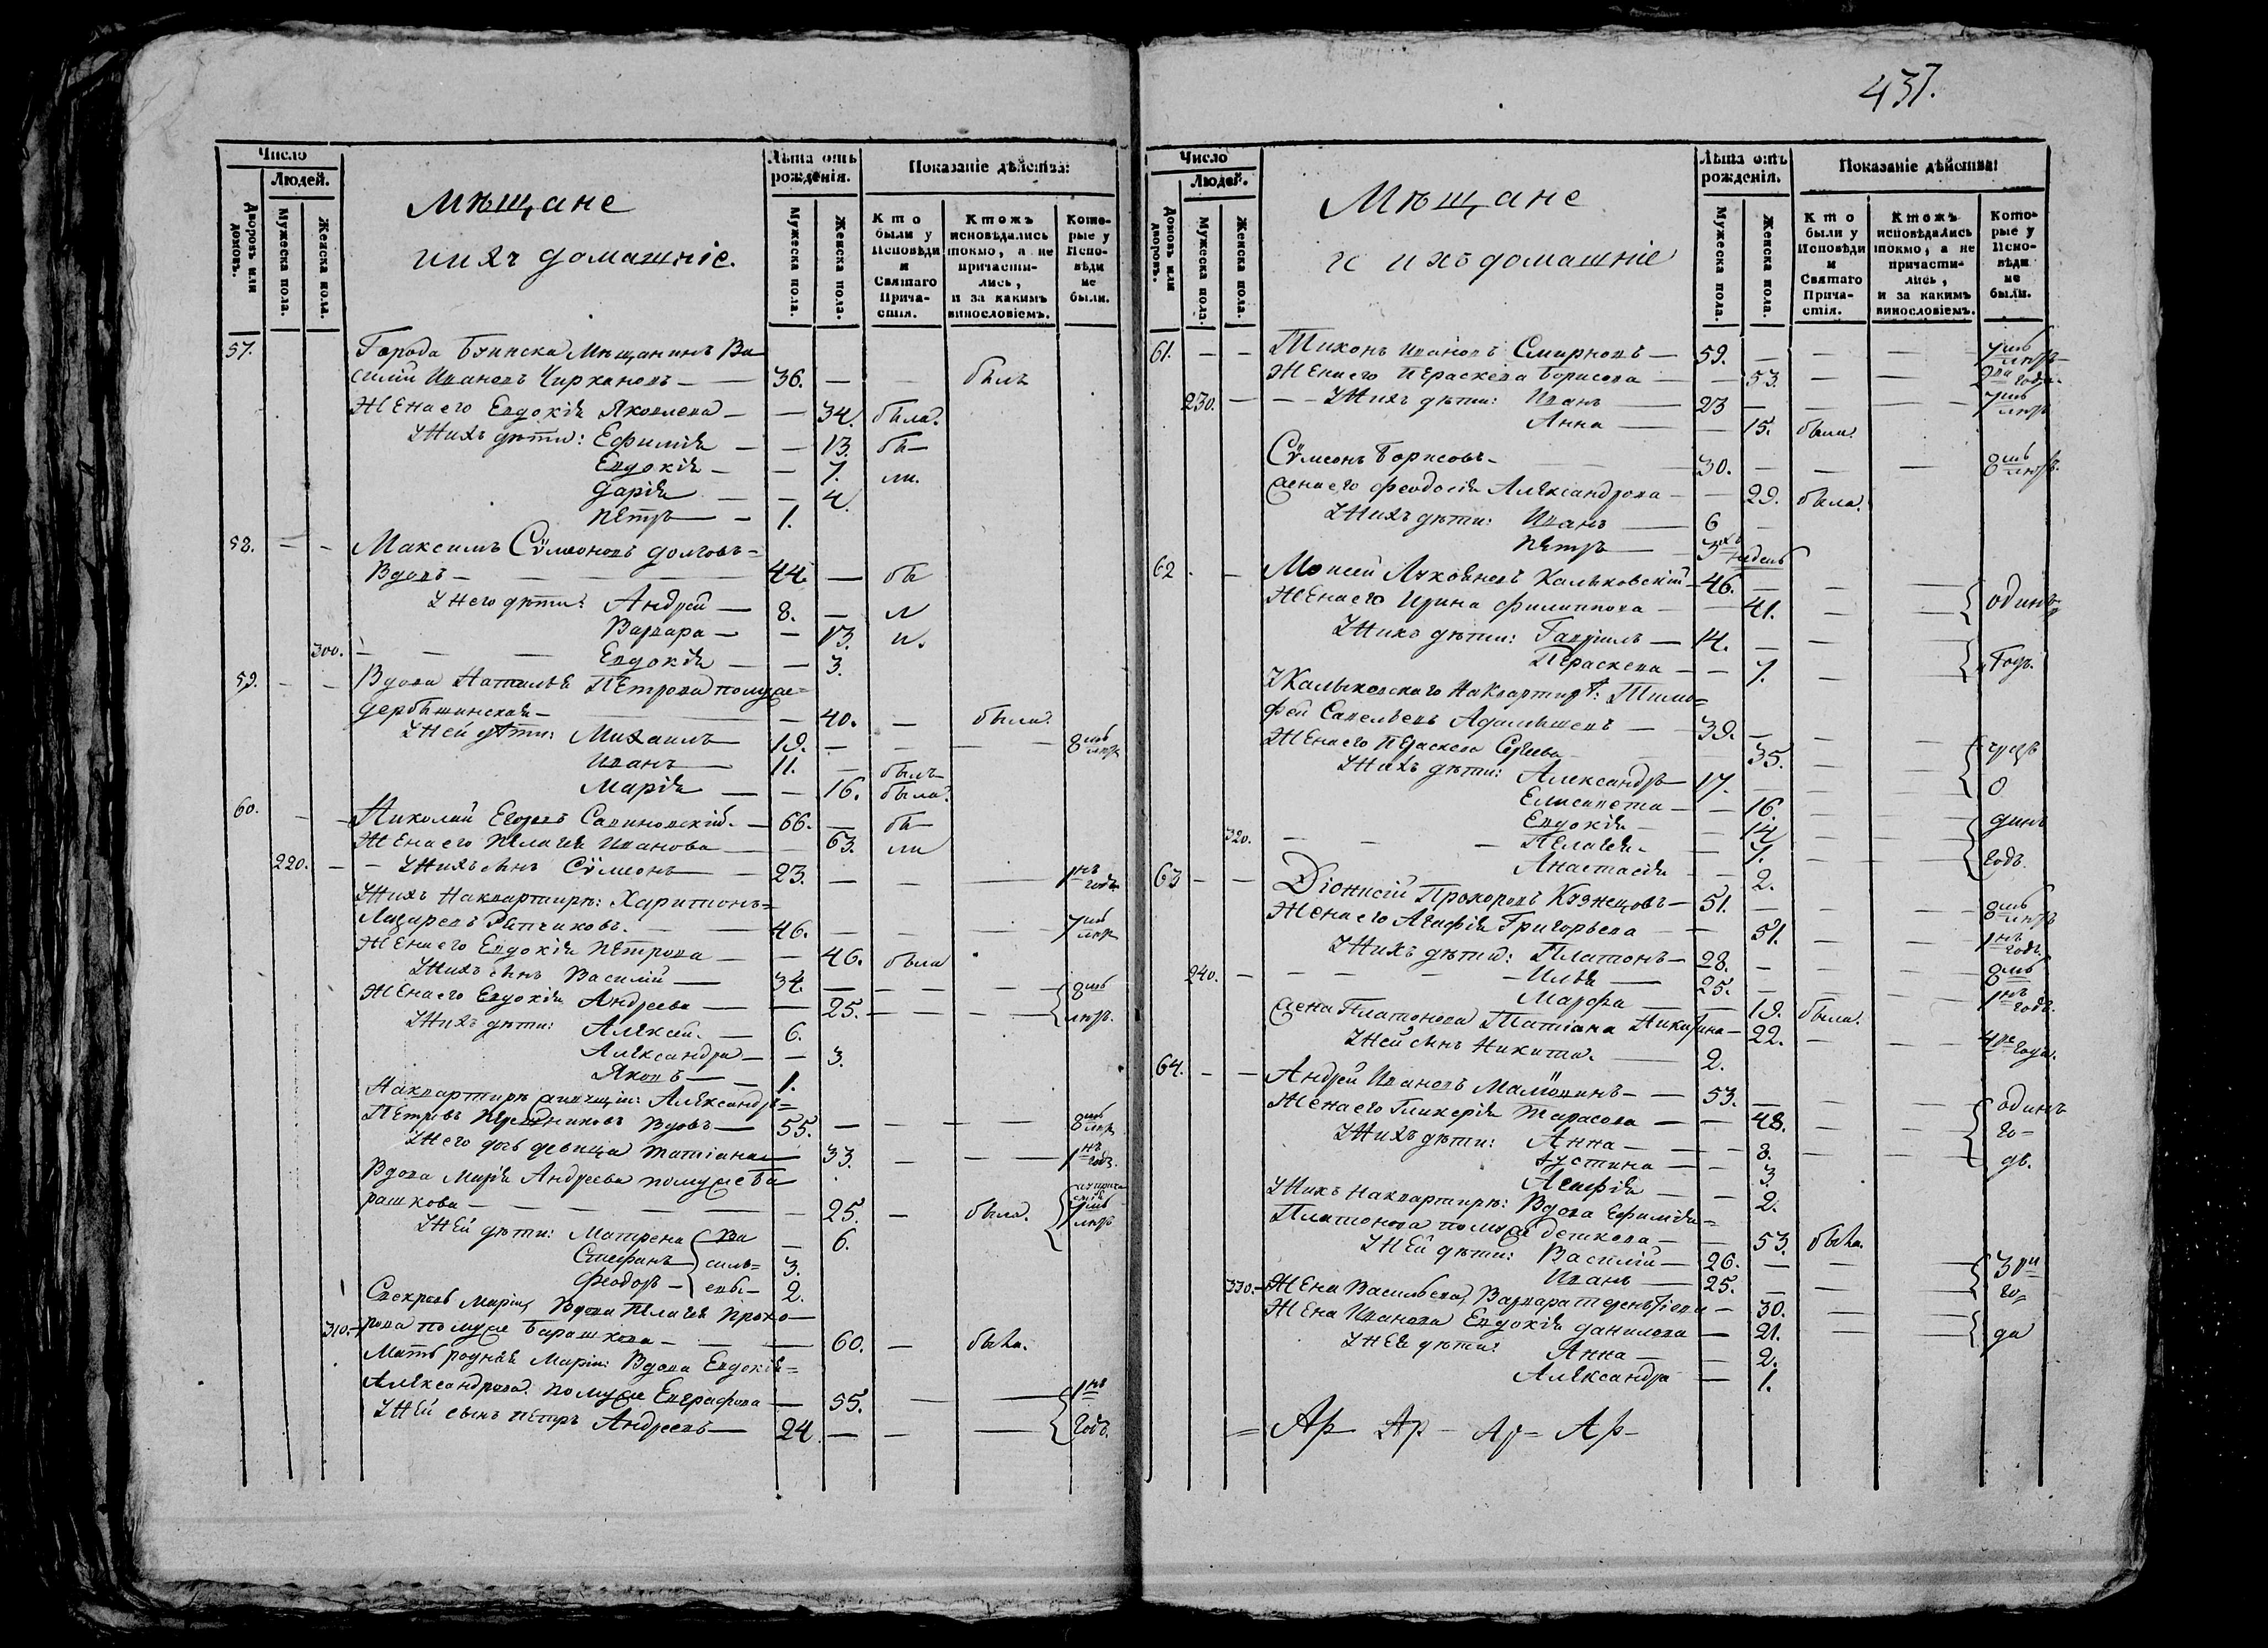 437.
Число
Людей.
Дворовъ или домовъ.
Мужеска пола.
Женска пола.
Мѣщане
и ихъ домашніе.
Лѣта отъ рожденія.
Мужеска пола.
Женска пола.
Показаніе дѣйства:
Кто были у Исповѣди и Святаго Прича-стія.
Ктожъ исповѣдались токмо, а не причасти-лись, и за какимъ винословіемъ.
Кото-рые у Испо-вѣди не были.
57. Города Буинска Мѣщанинъ Ва
силій Ивановъ — 36. — — былъ
Жена его Евдокія Яковлева — — 34. была.
У нихъ дѣти: Ефимія — — 13. бы—
Евдокія — — 7. ли.
Дарія — — 4.
Петръ — — 1.
58. — — Максимъ Сѵмеоновъ Долговъ=
Вдовъ — 44. — бы
У него дѣти: Андрей — 8. — л
Варвара — — 13. и.
300. — Евдокія — — 3.
59. — — Вдова Наталья Петрова по муже=
Дербышинская — — 40. — была.
У ней дѣти: Михаилъ 19. — — — 8мь лѣтъ
Иванъ — 11. — былъ
Марія — — 16. была.
60. — — Николай Егоровъ Савиновскій. — 66. — бы—
Жена его Пелагея Иванова — 63. ли
220. — — У нихъ сынъ Сѵмеонъ — 23. — — — 1нъ годъ
У нихъ на квартирѣ: Харитонъ=
Лазаревъ — 46. — — — 7мь лѣтъ
Жена его Евдокія Петрова — — 46. была
У нихъ сынъ Василій — 34. — — — 8мь
Жена его Евдокія Андреева — — 25. — — — лѣтъ.
У нихъ дѣти: Алексѣй. — 6.
Александра — — 3.
Яковъ — — 1.
На квартирѣ живущій: Александръ=
Петровъ Вдовъ — 55. — — — 8мь лѣтъ
У него дочь девица Татіана — 33. — — 1нъ годъ.
Вдова Марія Андреева по муже Ба
рашкова — — 25. — была. 7мь лѣтъ
У ней дѣти: Матрена Ва — 6.
Стефанъ силь= 3.
Феодоръ — евы — 2.
Свекровь Маріи, Вдова Пелагея Прохо—
310. — рова по муже Барашкова — — 60. — была.
Мать родная Маріи: Вдова Евдокія=
Александрова по муже Евграфова — 55. — — 1нъ
У ней сынъ Петръ Андреевъ — 24. — — — годъ.
Число
Людей.
Домовъ или дворовъ.
Мужеска пола.
Женска пола.
Мѣщане
и ихъ домашніе
Лѣта отъ рожденія.
Мужеска пола.
Женска пола.
Показаніе дѣйства:
Кто были у Исповѣди и Святаго Прича-стія.
Ктожъ исповѣдались токмо, а не причасти-лись, и за какимъ винословіемъ.
Кото-рые у Испо-вѣди не были.
61. — — Тихонъ Ивановъ Смирновъ — 59. — — — 7мь лѣтъ
Жена его Параскева Борисова — — 53. — — 2ва года.
230. — — У нихъ дѣти: Иванъ — 23 — — — 7мь лѣтъ
Анна — — 15. была.
Сѵмеонъ Борисовъ — 30. — — — 8мь лѣтъ.
Жена его Феодосія Александрова — — 29. была.
У нихъ дѣти: Иванъ — 6 —
Петръ — 3хъ недель
62. — Моисей Калыковскій — 46. — — — одинъ
Жена его Ирина Филиппова — — 41. — —
У нихъ дѣти: Гавріилъ — 14. — — — годъ.
Параскева — — 7. — —
У Калыковскаго на квартирѣ: Тимо=
фей Савельевъ — 39. — — —
Жена его Параскева Сергеева — — 35. — —
У нихъ дѣти: Александръ — 17. — — — о
Елисавета — — 16. — —
Евдокія — — 14 — — динъ
320. — — — Пелагея. — — 7. — — годъ.
Анастасія — — 2.
63 — — Діонисій Прохоровъ Кузнецовъ — 51. — — — 8мь лѣтъ
Жена его Агафія Григорьева — — 51. — — 1нъ годъ.
У нихъ дѣти: Платонъ — 28. — — — 8мь
240. — — — Илья — 25. — — — 1нъ годъ.
Марфа — — 19. была.
Жена Платонова Татіана — 22. — — 4ре года.
У ней сынъ Никита. — 2.
64. — — Андрей Ивановъ — 53. — — — одинъ
Жена его Гликерія Тарасова — — 48. — — го=
У нихъ дѣти: Анна — — 8. — — дъ.
Іустина — — 3.
Агафія — — 2.
У нихъ на квартирѣ: Вдова Ефимія=
Платонова по муже — 53. была.
У ней дѣти: Василій — 26. — — — 3ри
Иванъ — 25. — — — го=
330. — Жена Васильева, Варвара — 30. — —
Жена Иванова Евдокія Данилова — 21. — — да
У нея дѣти: Анна — — 2.
Александра — 1.